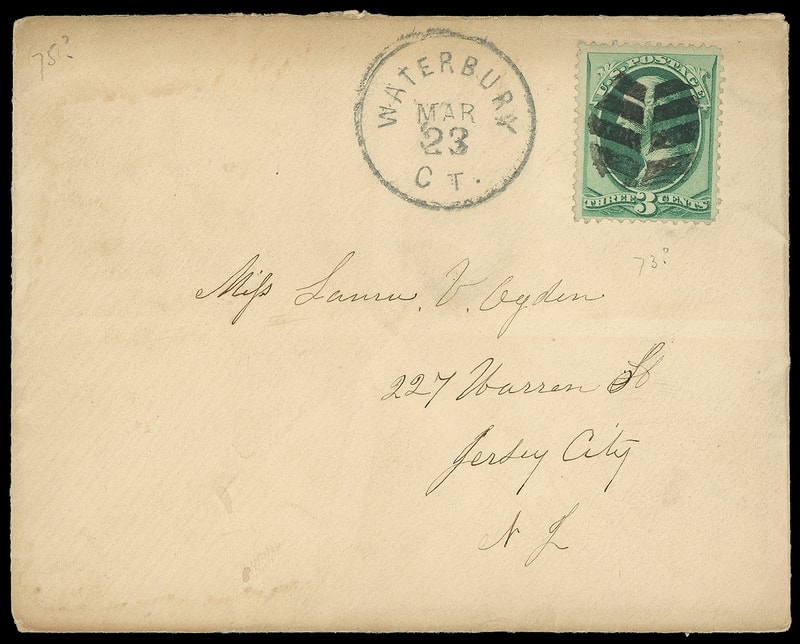 75?
WATERBURY
MAR
23
CT.
U.S. POSTAGE
THREE 3 CENTS
73?
Miſs Laura. V. Ogden
227 Warren St
Jersey City
N J